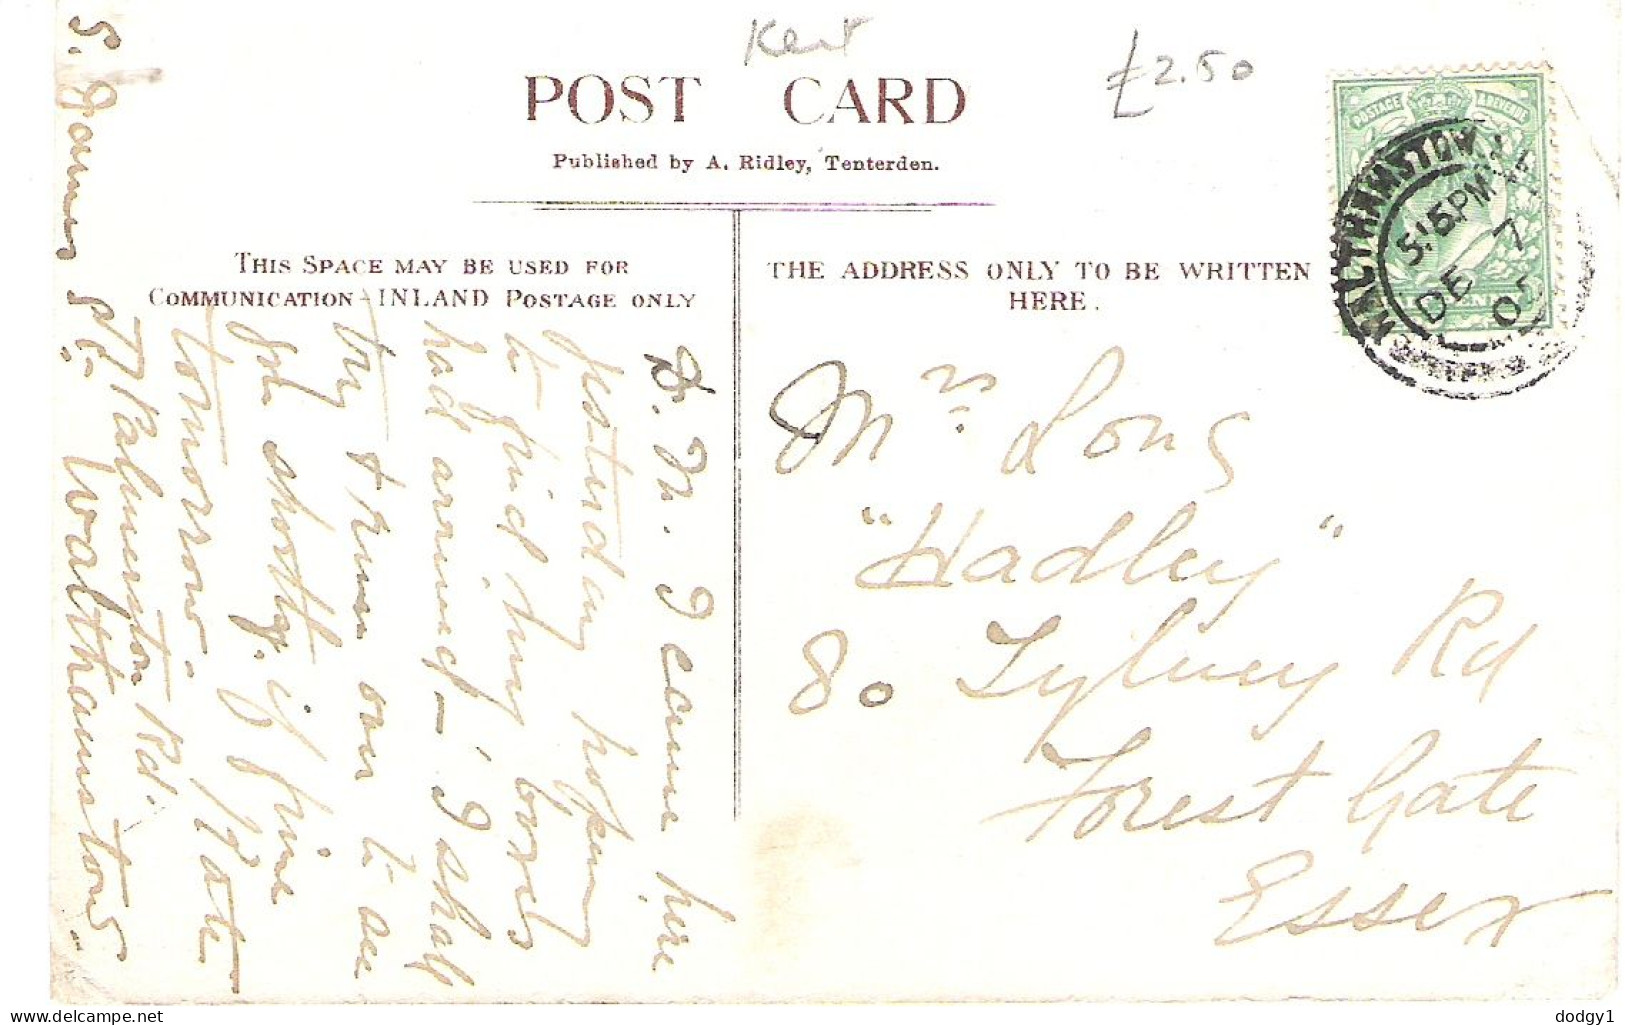 Kent
£2.50
POST CARD
Published by A. Ridley, Tenterden.
THIS SPACE MAY BE USED FOR
COMMUNICATION - INLAND POSTAGE ONLY
THE ADDRESS ONLY TO BE WRITTEN
HERE.
POSTAGE & REVENUE
WALTHAMSTOW
5.15PM
DE 7
05
D. M. I came here
yesterday hoping
to find my boxes
had arrived - I shall
try & run over to see
you shortly. if fine
tomorrow.
Palmerston Rd.
Walthamstow.
Mrs Long
"Hadley"
80 Sylney Rd
Forest Gate
Essex
dodgy1